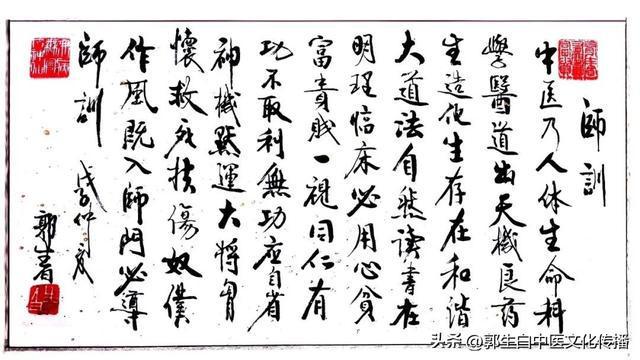 師訓
中医乃人体生命科
學醫道出天機良药
生造化生存在和谐
大道法自然读書在
明理临床必用心贫
富貴賤一視同仁有
功不取利無功应自省
神機默運大將胷
懷救死扶傷奴僕
作風既入師門必遵
師訓
戊子仲
郭生
头条 @郭生白中医文化传播